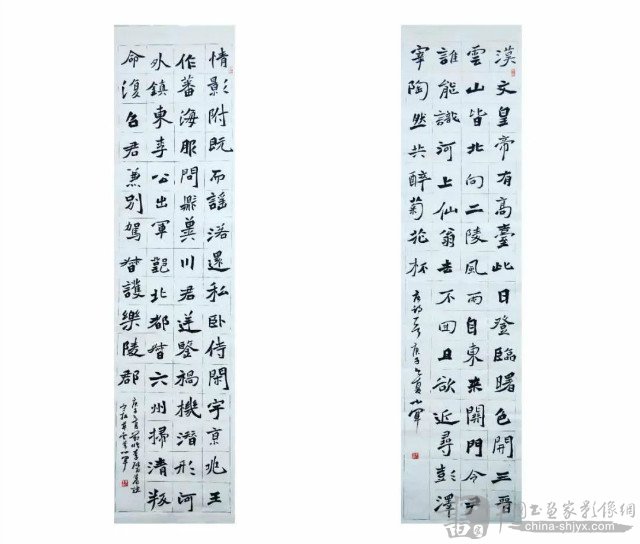 漢文皇帝有高臺此日登臨曙色開三晉
雲山皆北向二陵風雨自東來關門令尹
誰能識河上仙翁去不回且欲近尋彭澤
宰陶然共醉菊花杯
情影附既而謠諾還私卧侍閑宇京兆王
作蕃海服問鼎冀川君逆鑒禍機潛形河
外鎮東李公出軍北都督六州掃清叛
命復召君兼別駕督護樂陵郡
书画家影像網
china-shjyx.com